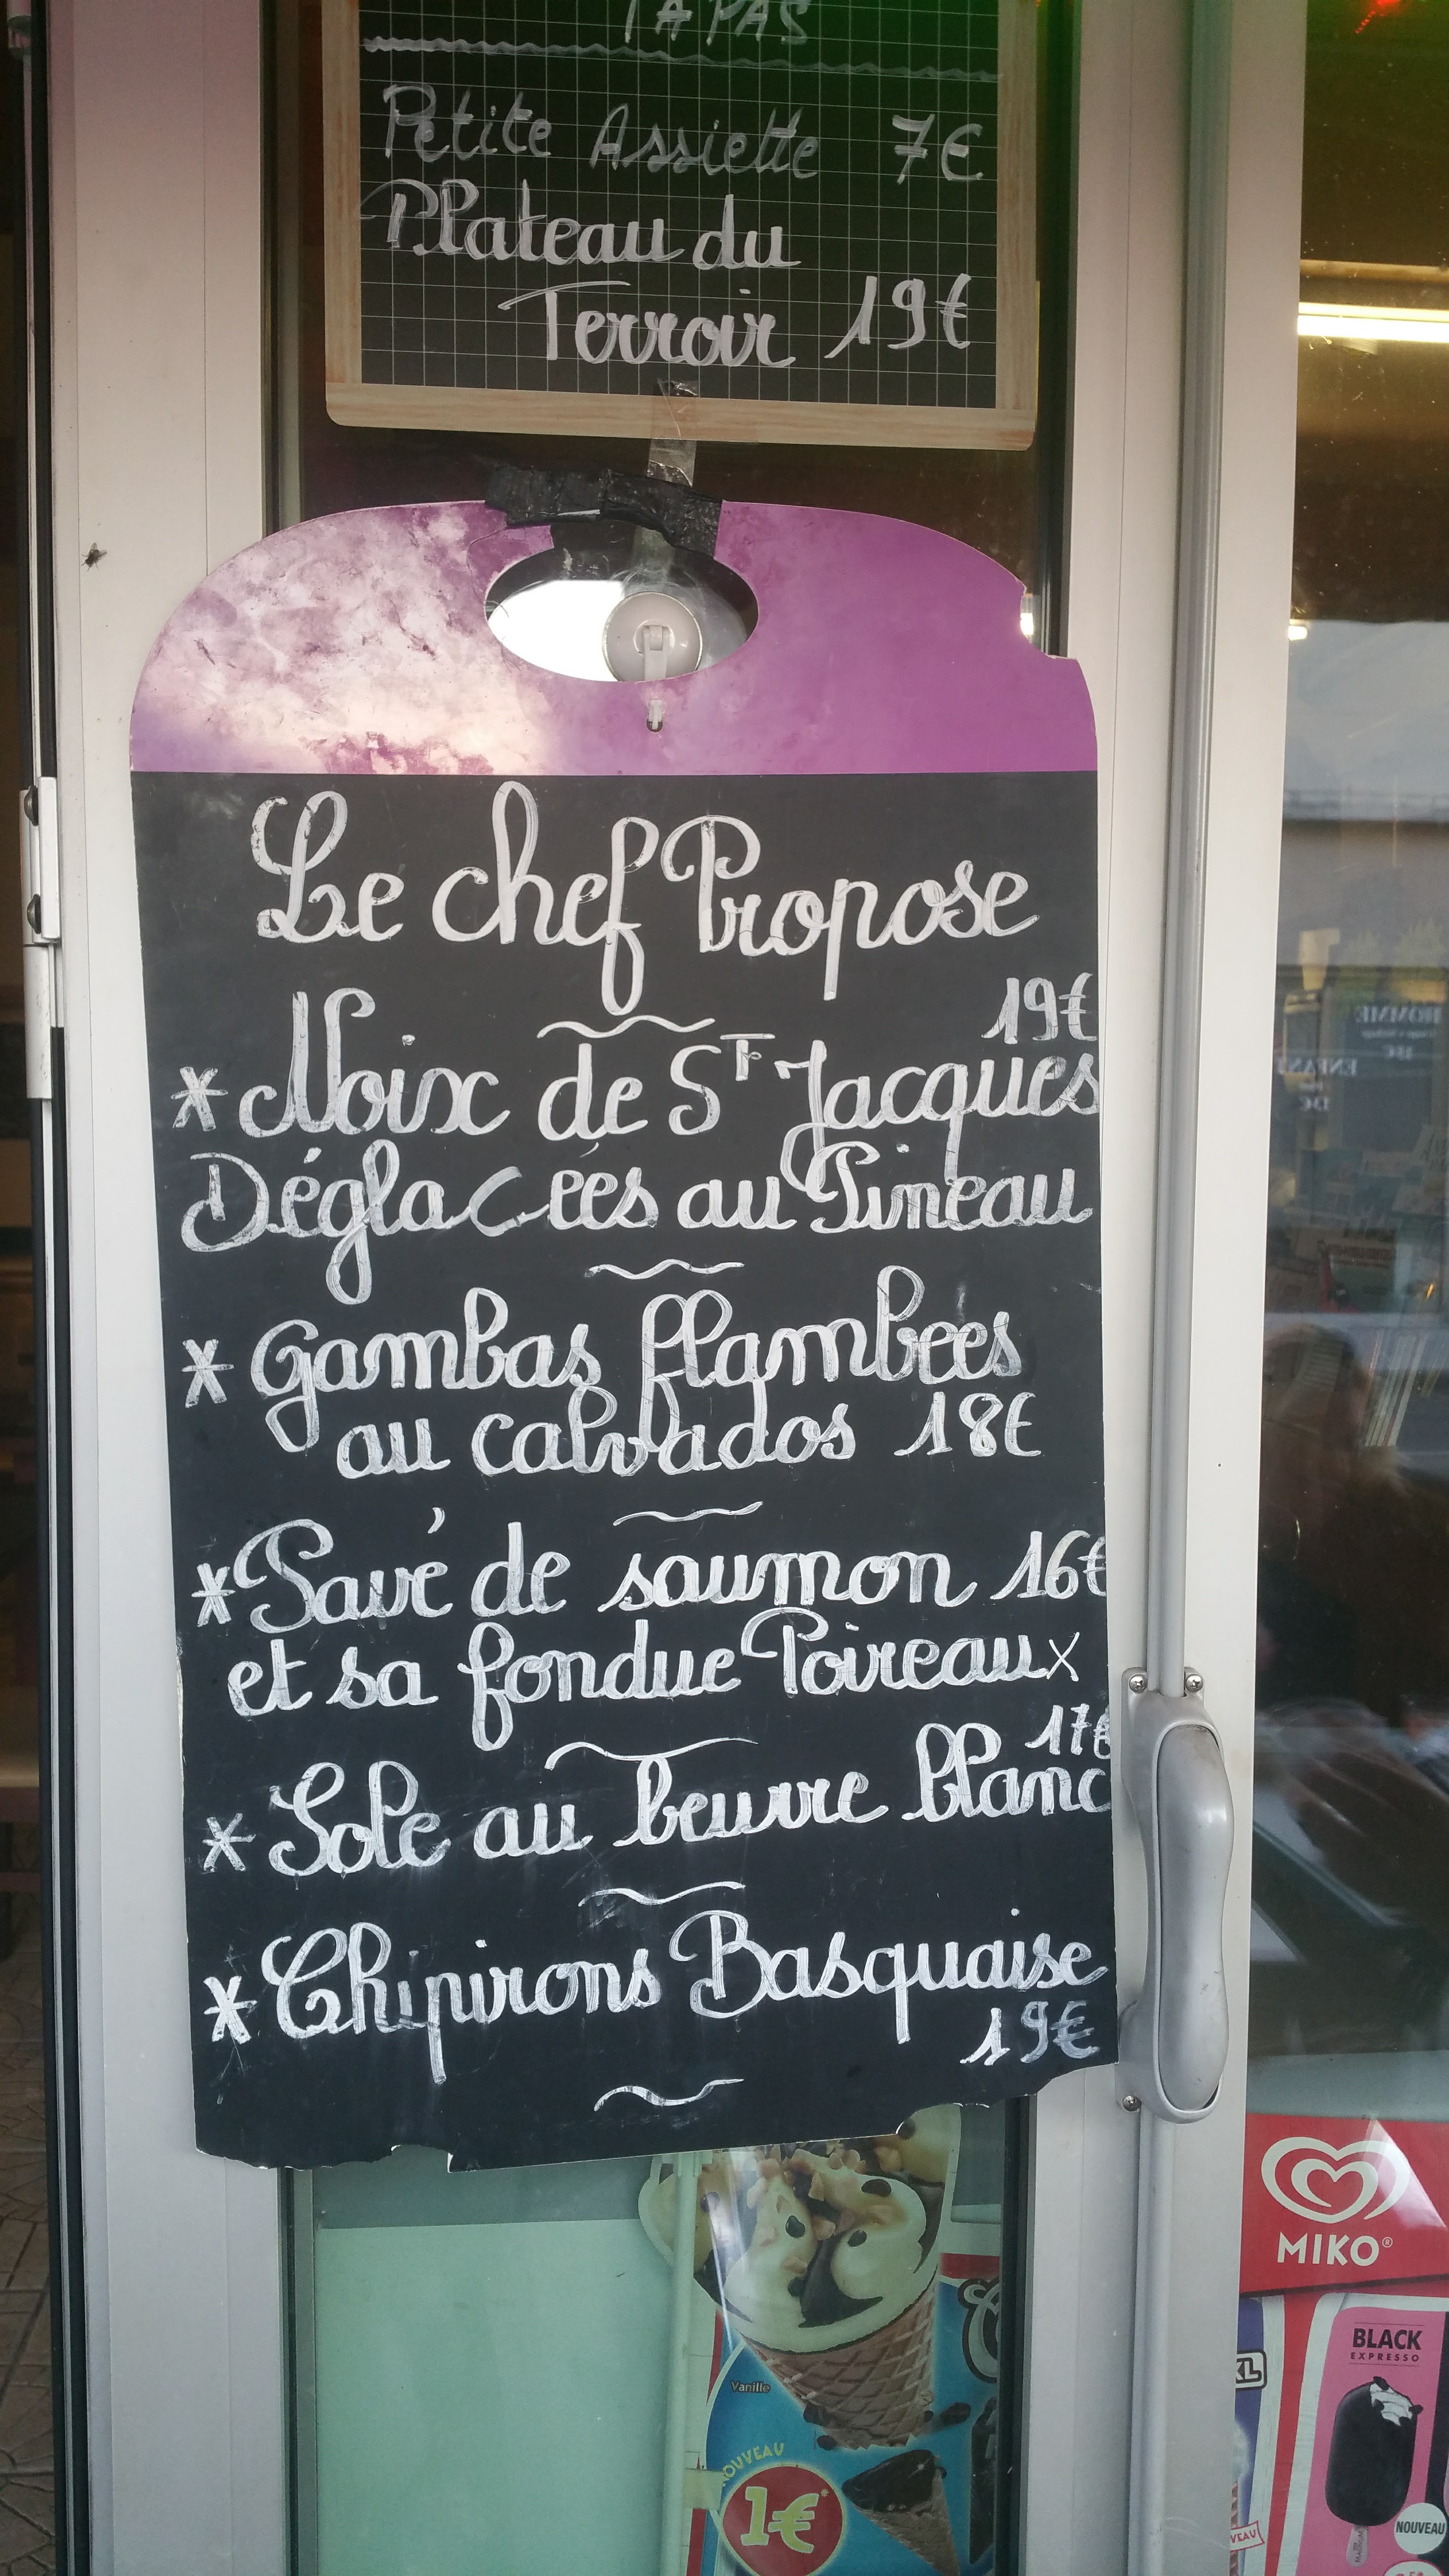 TAPAS
Petite Assiette 7€
Plateau du
Terroir 19€
Le chef Propose
19€
*Noix de ST Jacques
Déglacées au Pineau
*Gambas flambees
au calvados 18€
*Pavé de saumon 16€
et sa fondue Poireaux
17€
*Sole au beurre blanc
*Chipirons Basquaise
19€
MIKO®
BLACK
EXPRESSO
XL
Vanille
NOUVEAU
1€*
NOUVEAU
HOMME
ENFANT